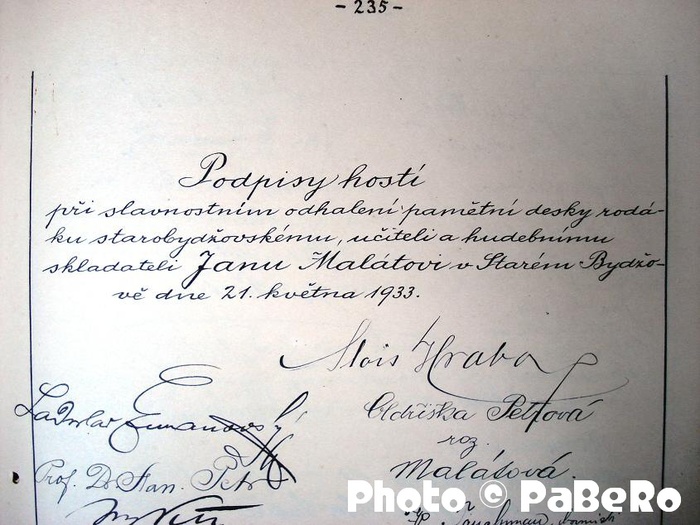 - 235 -
Podpisy hostí
při slavnostním odhalení pamětní desky rodá-
ku starobydžovskému, učiteli a hudebnímu
skladateli Janu Malátovi v Starém Bydžo-
vě dne 21. května 1933.
Alois Hraba
Ladislav
Oldřiška Petrová
roz.
Prof. Dr Stan. Petr
Malátová.
Photo © PaBeRo